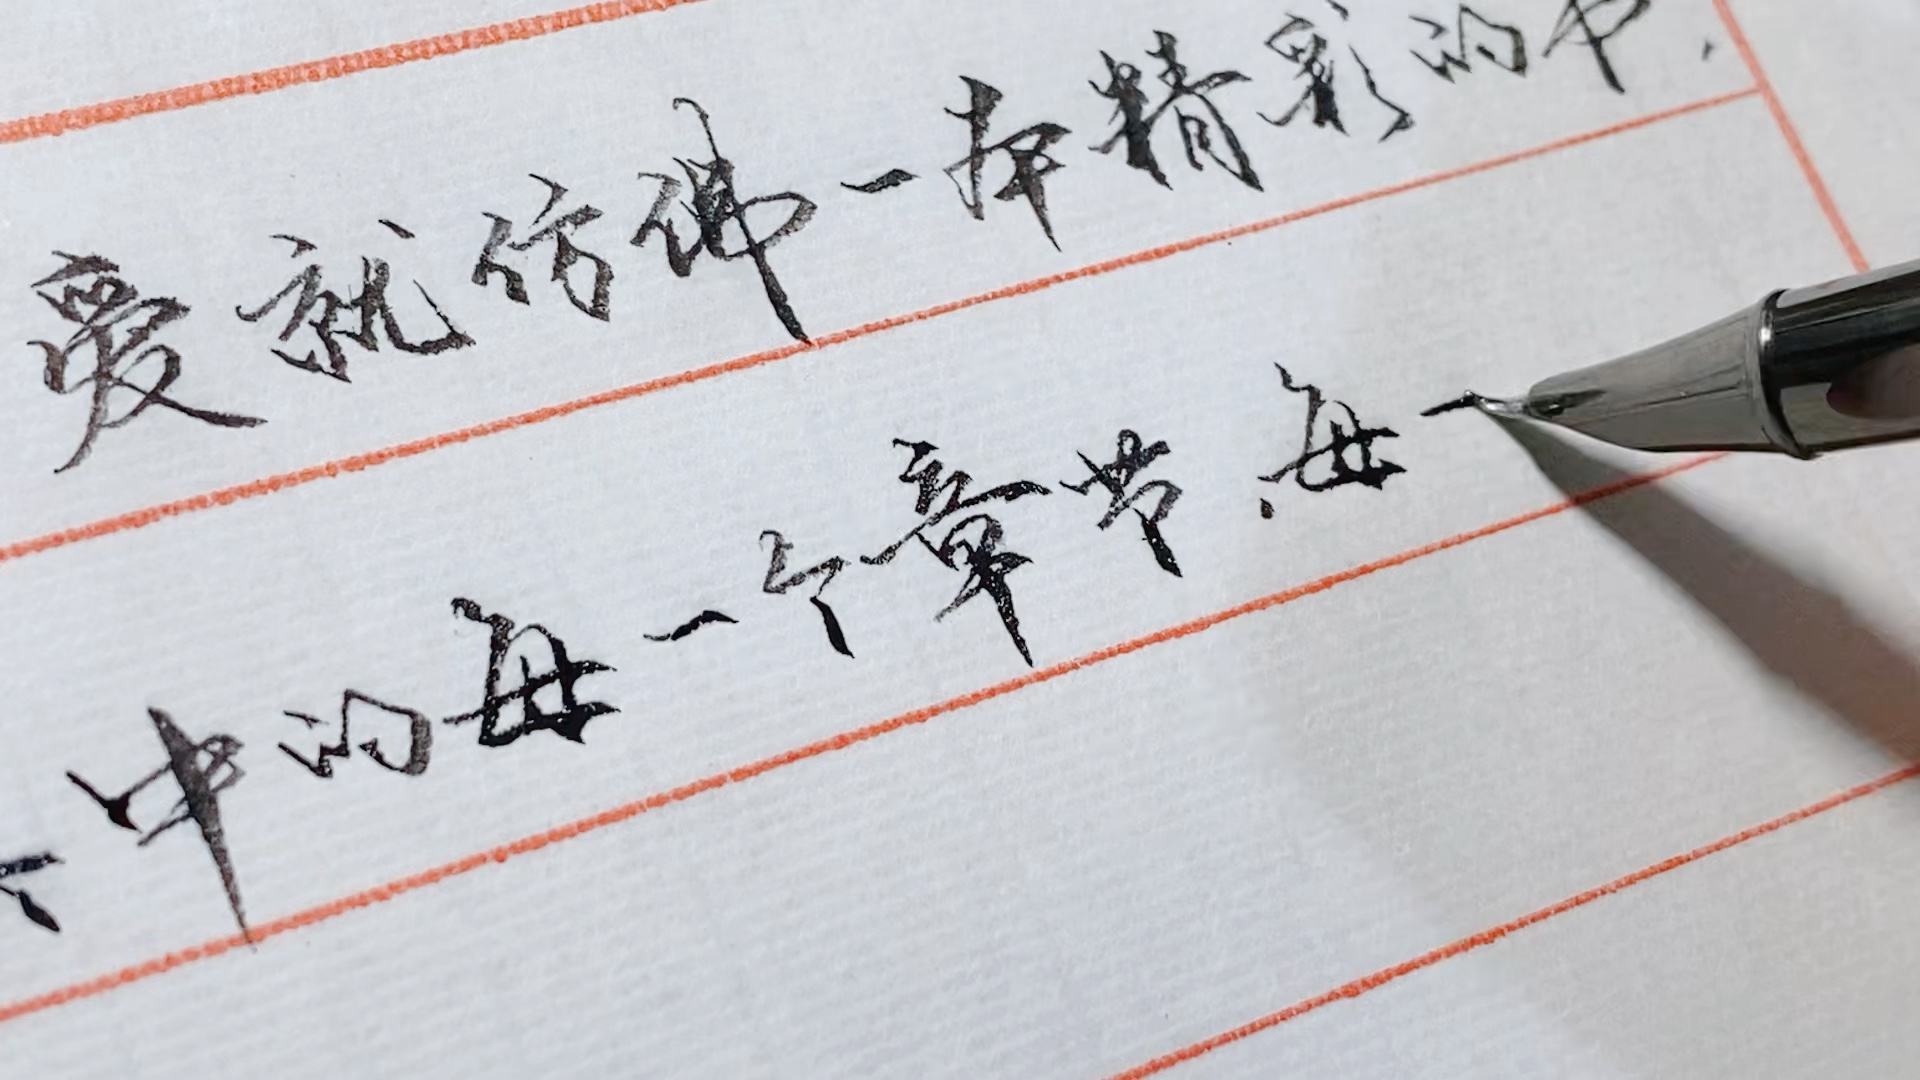 爱就仿佛一本精彩的书,
中的每一个章节,每一